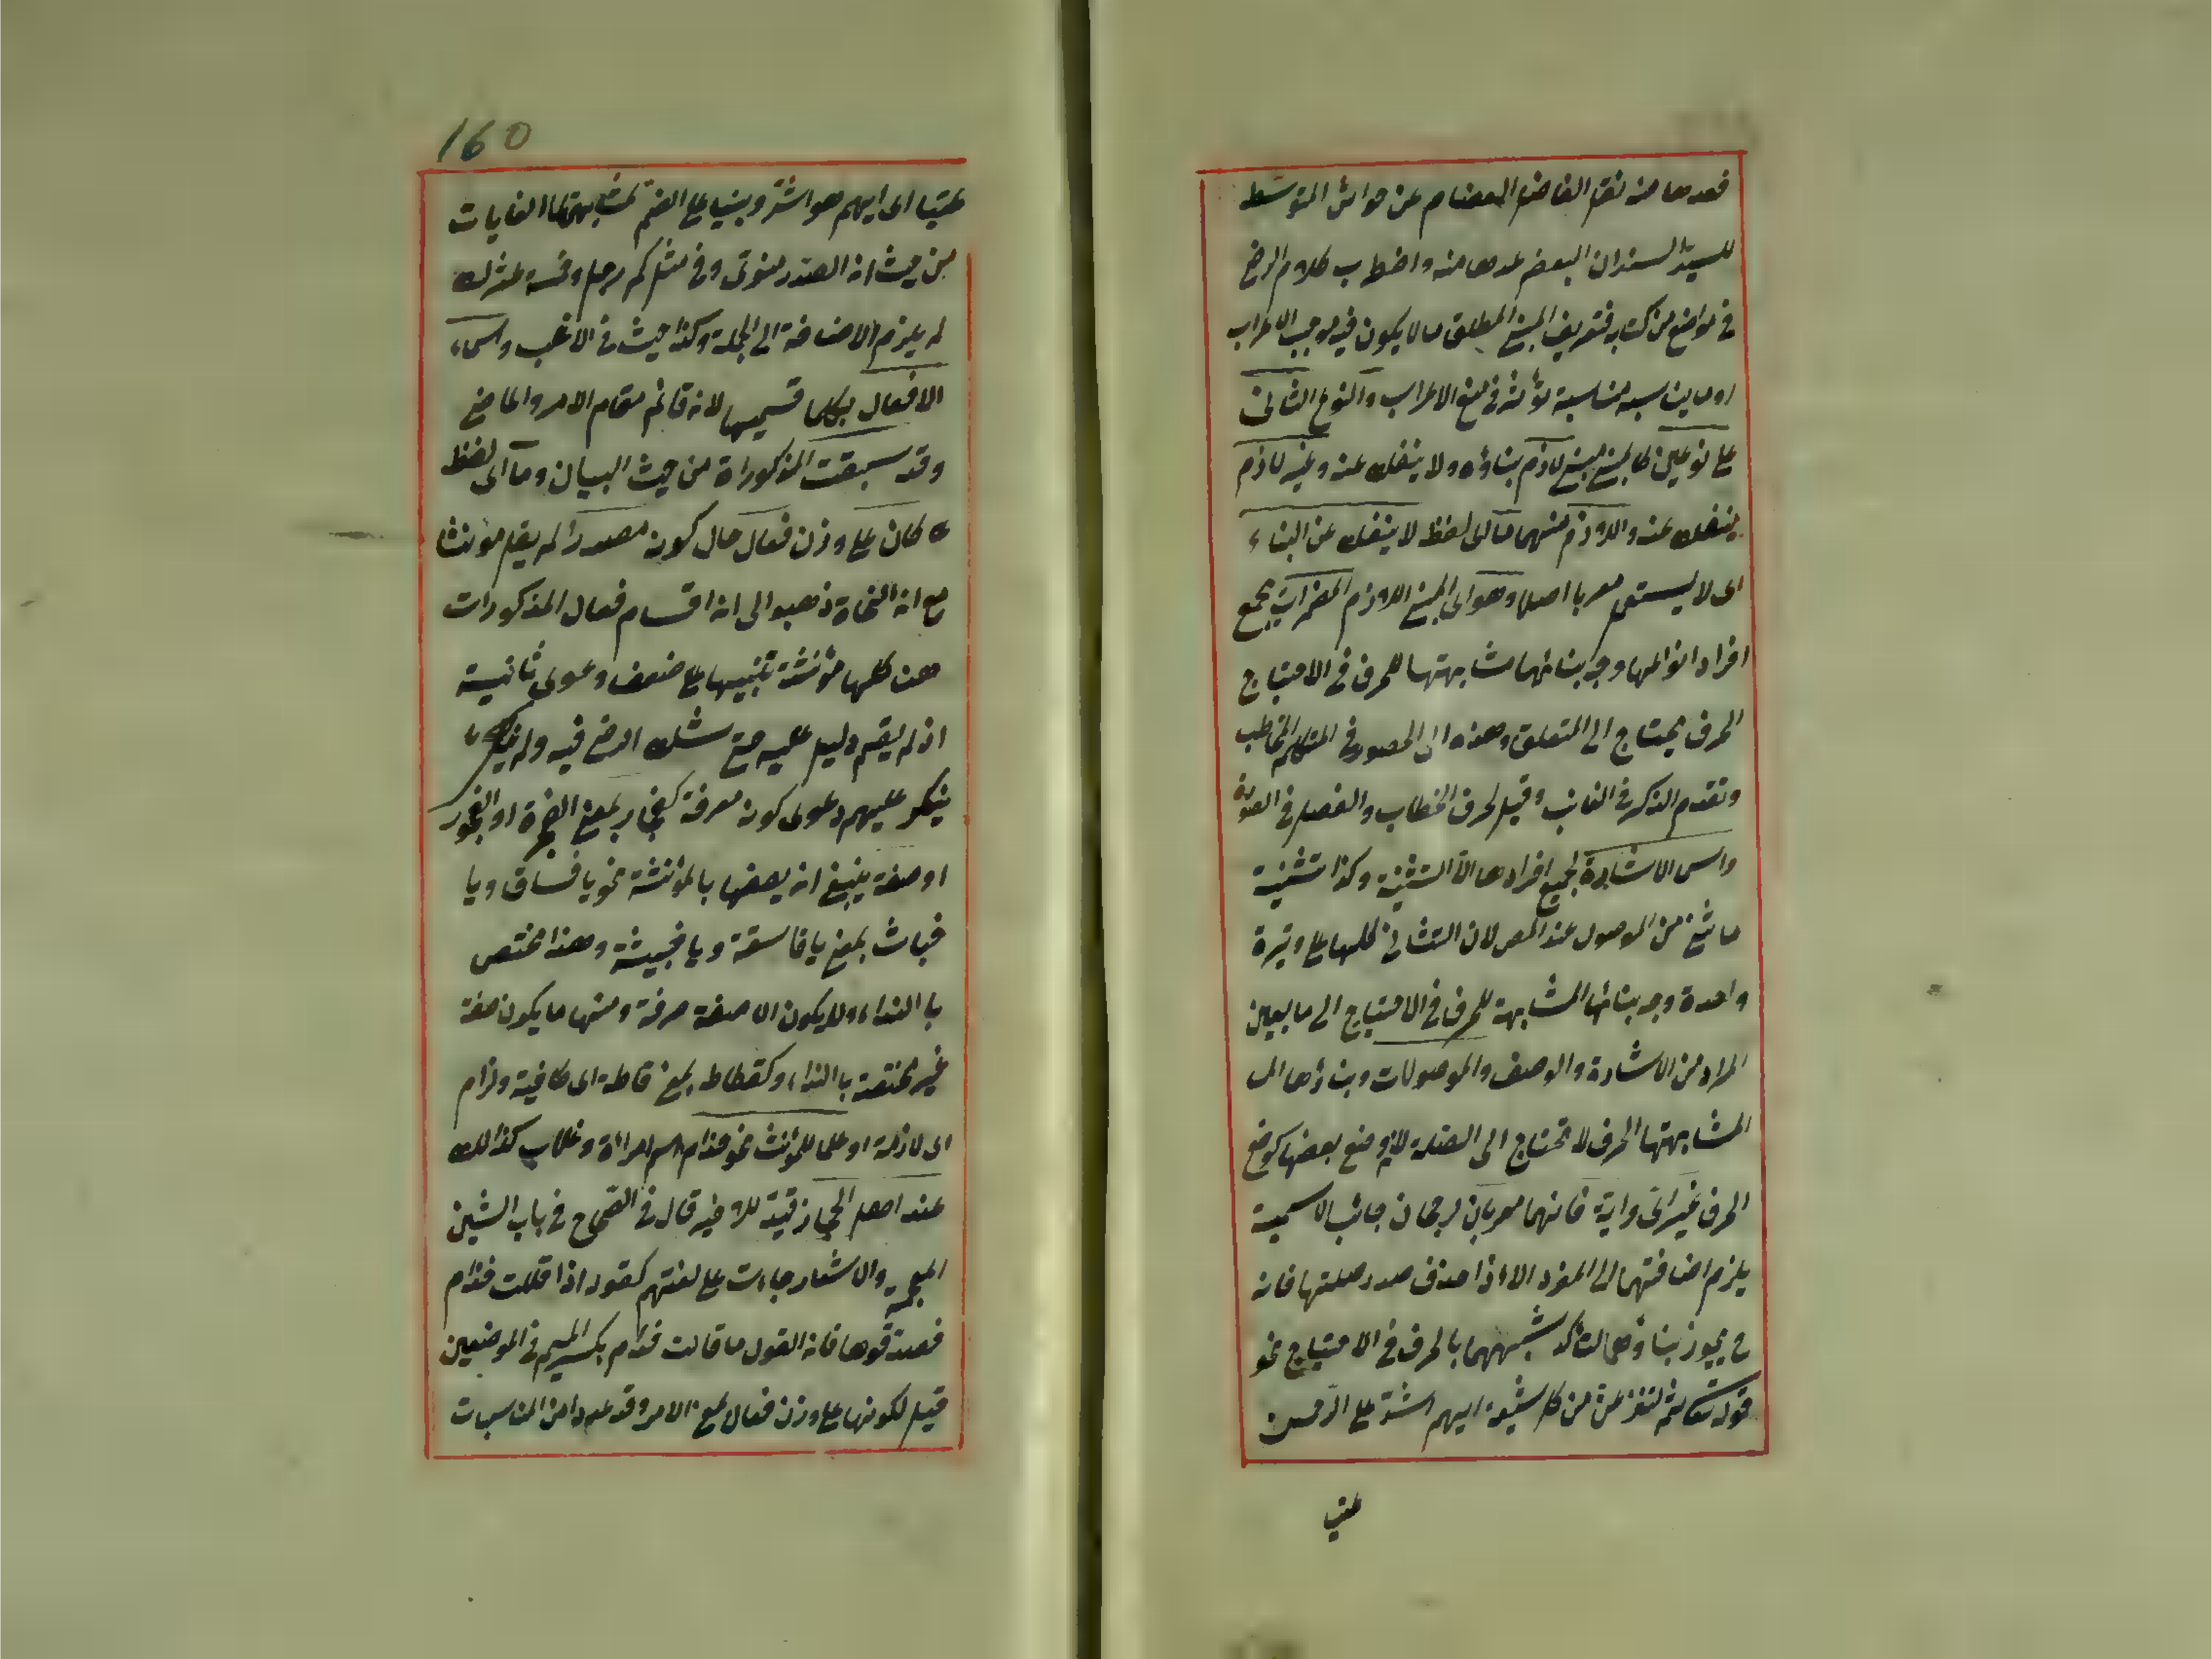 فعدها منه نقل الفاضل العصام عن حواش المتوسط
للسيد السند ان البعض عدها منه واضطرب كلام الرضى
فى مواضع من كتابه فتعريف المبنى المطلق ما لا يكون فيه موجب الاعراب
او ما يناسبه مناسبة مؤثرة فى منع الاعراب والنوع الثانى
على نوعين كالمبنى مبنى لازم بناؤه ولا ينفك عنه وغير لازم
ينفك عنه واللازم منهما ما اى لفظ لا ينفك عن البناء
اى لا يستعمل معربا اصلا وهو اى المبنى اللازم المضمرات بجمع
افراد انواعها وجه بنائها مشابهتها للحرف فى الاحتياج
الحرف يحتاج الى المتعلق وهذه الى الحضور فى المتكلم والمخاطب
وتقدم الذكر فى الغائب وقيل لحرف الخطاب والفصل فى
واسم الاشارة لجميع افرادها الا التثنية وكذا تثنية
ما ثنى من الموصول عند المص لان التثانى كلها على وتيرة
واحدة وجه بنائها المشابهة للحرف فى الاحتياج الى ما يعين
المراد من الاشارة والوصف والموصولات وبناؤها
المشابهتها الحرف لا تحتاج الى الصلة وضع بعضها كوضع
الحرف غير اى واية فانهما معربان لرجحان جانب الاسمية
يلزم اضافتهما الى المفرد الا اذا حذف صدر صلتها فانه
ح يجوز بناؤهما لتأكد شبههما بالحرف فى الاحتياج نحو
قوله تعالى ثم لننزعن من كل شيعة ايهم اشد على الرحمن
عتيا
160
عتيا اى ايهم هو اشد وبنيا على الضم لمشابهتهما الغايات
من حيث ان الصدر منوى وفى مثل كم رجل وخمسة عشرك
لم يلزم الاضافة الى الجملة وكذا حيث فى الاغلب واسماء
الافعال بكلا قسميها لانه قائم مقام الامر والماضى
وقد سبقت المذكوراة من حيث البيان وما اى لفظ
كان على وزن فعال حال كونه مصدرا لم يقل مؤنثا
مع ان النحاة ذهبوا الى ان اقسام فعال المذكورات
هن كلها مؤنثة تنبيها على ضعف دعوى ثانيته
اذ لم يقم دليل عليه حتى شك الرضى فيه ولم
ينكر عليهم دعوى كونه معرفة كفجار بمعنى الفجرة او الفجور
او صفة ينبغى ان يصفها بالمؤنثة نحو يا فساق ويا
خباث بمعنى يا فاسقة ويا خبيثة وهذا مختص
با النداء ولا يكون الا صفة معرفة ومنها ما يكون صفة
غير مختصة با النداء وكقطاط بمعنى قاطة اى كافية ولزام
اى لازمة او علما للمؤنث نحو حذام اسم امراة وغلاب كذالك
عند اهل الحجاز قيد للاخير قال فى الصحاح فى باب الشين
المعجمة والاشعار جاءت على لغتهم كقوله اذا قالت حذام
فصدقوها فان القول ما قالت حذام بكسر الميم فى الموضعين
قيل لكونها على وزن فعال بمعنى الامر وقد عد من المناسبات